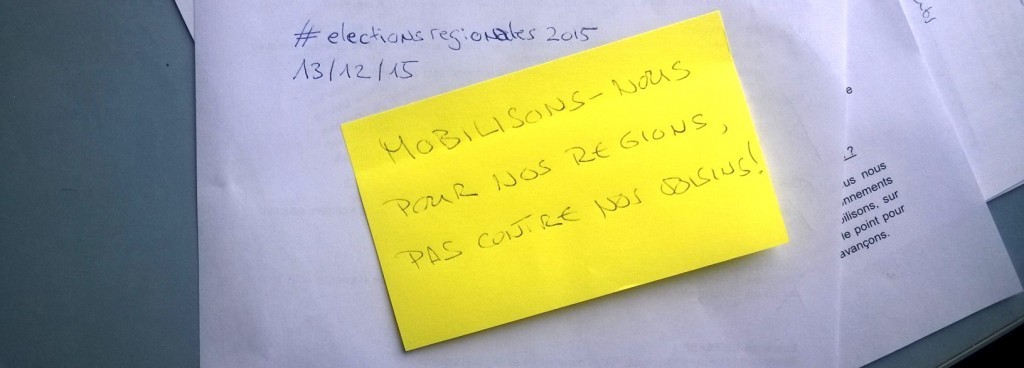 # electionsregionales 2015
13/12/15
MOBILISONS-NOUS
POUR NOS REGIONS,
PAS CONTRE NOS VOISINS!
e
?
us nous
nnements
ilisons, sur
le point pour
avançons.